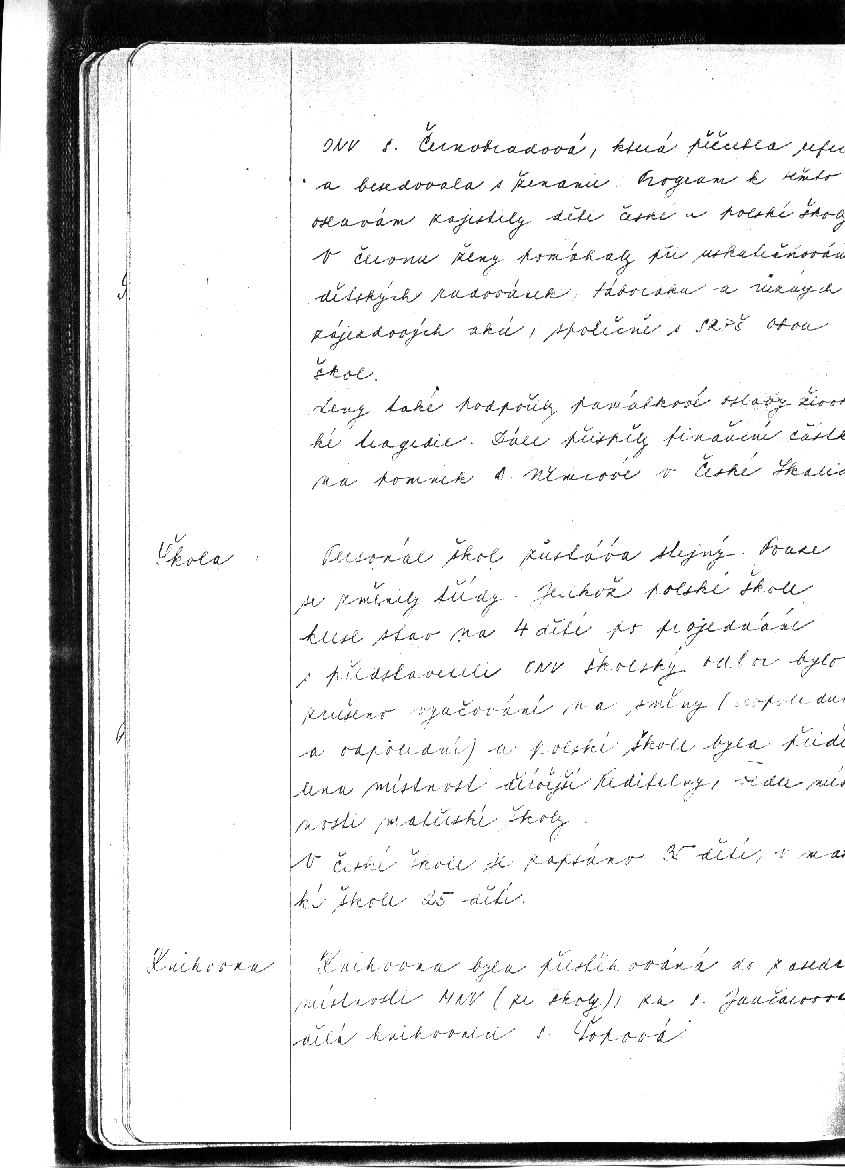 ONV s. Černohradová, která přečetla refe
a besedovala s ženami. Program k těmto
oslavám zajistily děti české a polské školy
V červnu ženy pomáhaly při uskutečňován
dětských radovánek, táboráku a různých
zájezdových akcí, společně s SRPŠ obou
škol.
Ženy také podpořily památkové oslavy život
ké tragedie. Dále přispěly finanční částk
na pomník B. Němcové v České Skalic
Škola
Personál škol zůstává stejný. Pouze
se změnily třídy. Jelikož polské škole
klesl stav na 4 děti po projednání
s představiteli ONV školský odbor bylo
zrušeno vyučování na směny (dopoledn
a odpolední) a polské škole byla přidě
lena místnost dřívější ředitelny, vedle mís
nosti mateřské školy.
V české škole je zapsáno 35 dětí, v mat
ké škole 25 dětí.
Knihovna
Knihovna byla přestěhována do zaseda
místnosti MNV (ze školy), za s.
dělá knihovnici s. Ťopová